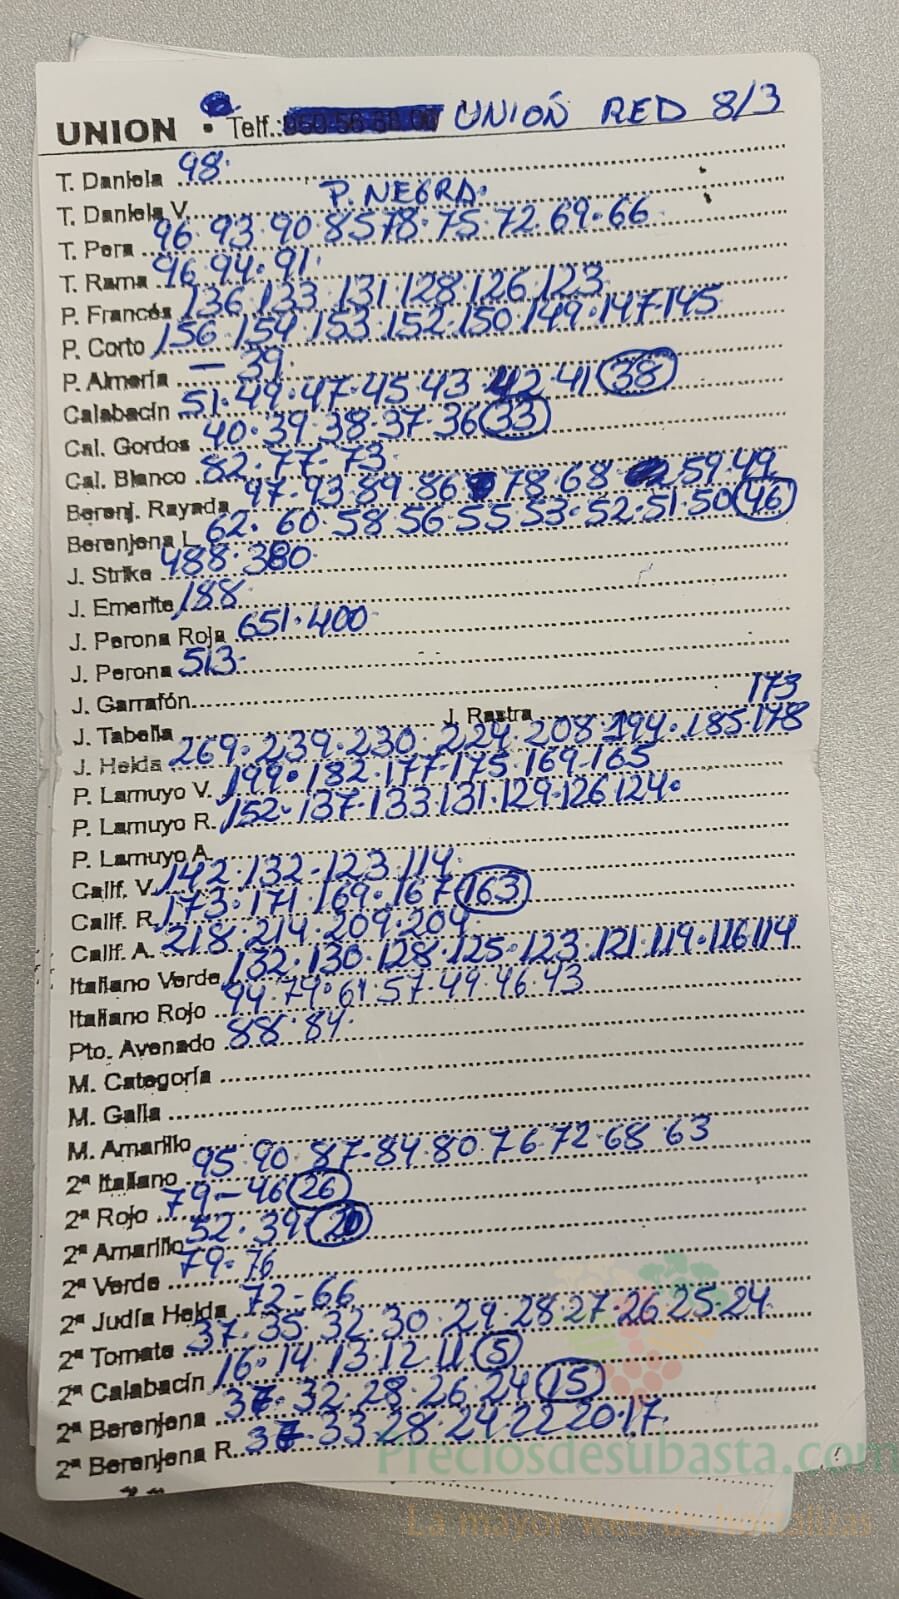 UNION • Telf.: UNIÓN RED 8/3
T. Daniela 98.
T. Daniela V. P. NEGRA.
T. Pera 96.93.90.85.78.75.72.69.66
T. Rama 96.94.91.
P. Francés 136.133.131.128.126.123
P. Corto 156.154.153.152.150.149.147.145
P. Almería — 39
Calabacín 51.49.47.45.43.42.41 38
Cal. Gordos 40.39.38.37.36 33
Cal. Blanco 82.77.73
Berenj. Rayada 97.93.89.86 78.68 59.49
Berenjena L 62.60.58.56.55.53.52.51.50 46
J. Strike 488.380
J. Emerite 188
J. Perona Roja 651.400
J. Perona 513.
J. Garrafón
J. Tabella J. Rastra 173
J. Helda 269.239.230.224.208.194.185.178
P. Lamuyo V. 199.182.177.175.169.165
P. Lamuyo R. 152.137.133.131.129.126.124.
P. Lamuyo A.
Calif. V. 142.132.123.114
Calif. R. 173.171.169.167 163
Calif. A. 218.214.209.204
Italiano Verde 132.130.128.125.123.121.119.116.114
Italiano Rojo 94.79.61.57.49.46.43
Pto. Avenado 88.84.
M. Categoría
M. Galia
M. Amarillo
2ª Italiano 95.90.87.84.80.76.72.68.63
2ª Rojo 79-46 26
2ª Amarillo 52.39
2ª Verde 79.76
2ª Judía Helda 72-66
2ª Tomate 37.35.32.30.29.28.27.26.25.24
2ª Calabacín 16.14.13.12.11 5
2ª Berenjena 32.28.26.24 15
2ª Berenjena R. 33.28.24.22.20.17.
Preciosdesubasta.com
La mayor web de hortalizas